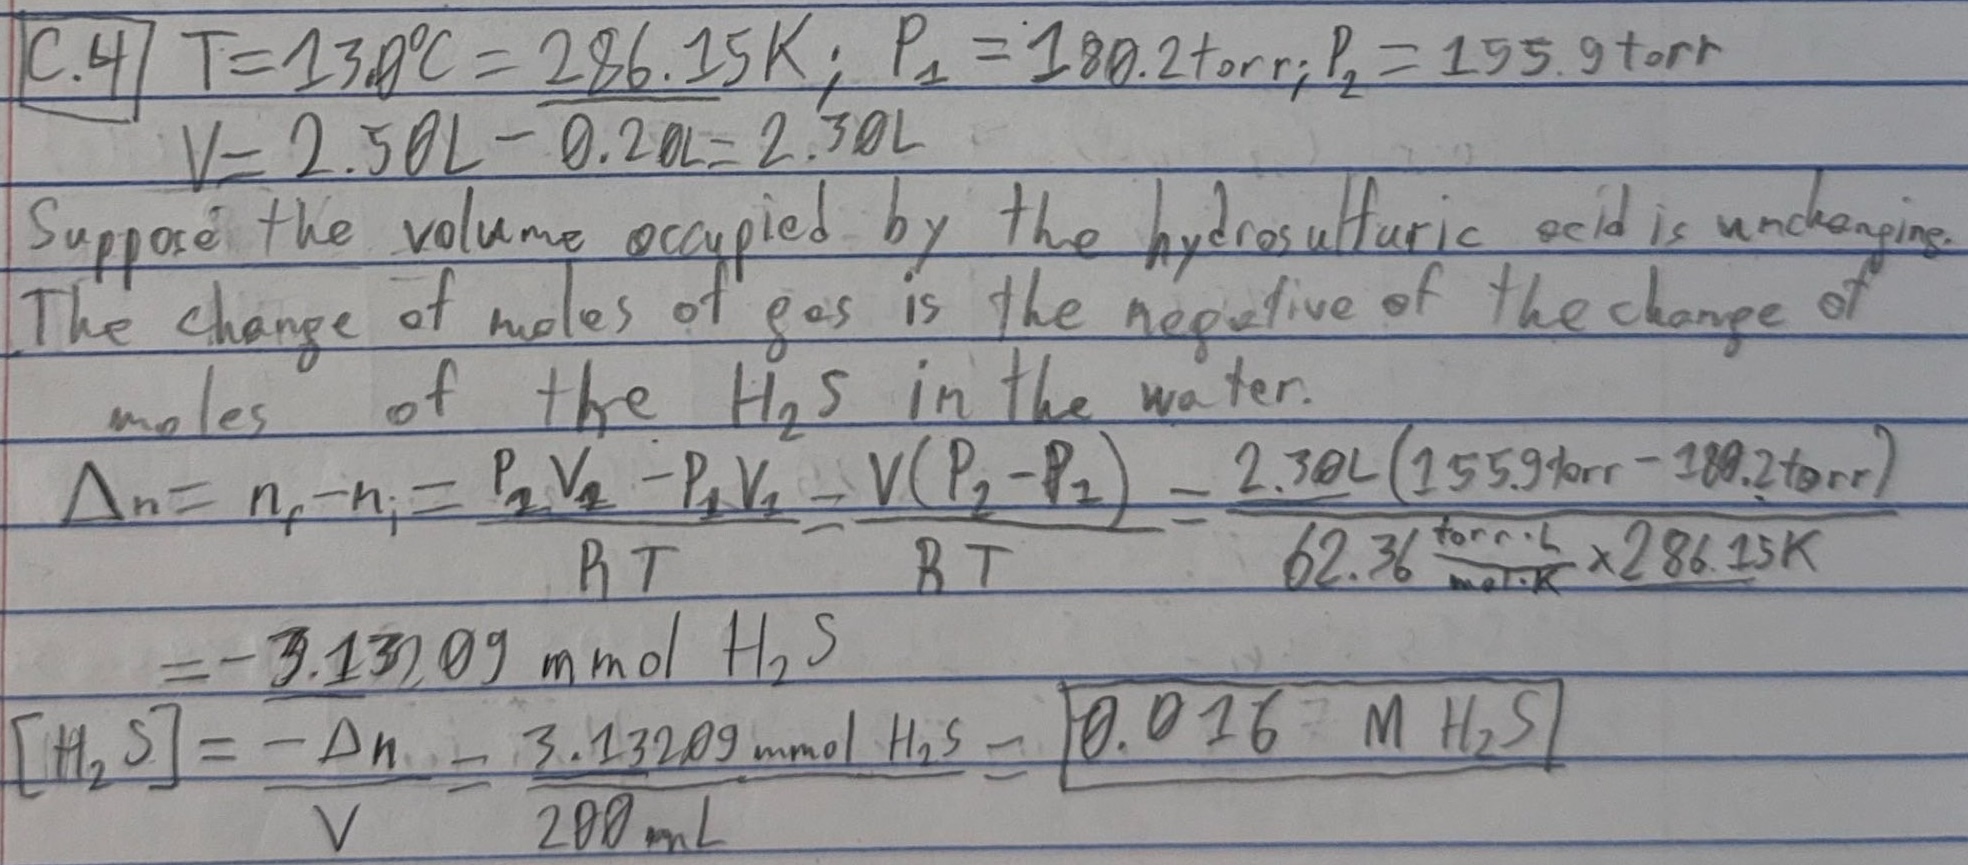 C.4 T=13.0°C = 286.15K; P₁ = 180.2torr; P₂ = 155.9torr
V= 2.50L - 0.20L= 2.30L
Suppose the volume occupied by the hydrosulfuric acid is unchanging.
The change of moles of gas is the negative of the change of
moles of the H₂S in the water.
Δn= n_f-n_i = (P₂V₂ - P₁V₁)/(RT) = V(P₂-P₁)/(RT) = 2.30L(155.9torr-180.2torr)/(62.36 (torr·L)/(mol·K) × 286.15K)
= -3.13209 mmol H₂S
[H₂S] = -Δn/V = 3.13209 mmol H₂S/200mL = 0.016 M H₂S